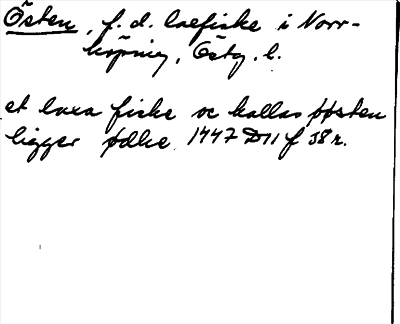 Östen, f. d. laxfiske i Norr-
köping, Östg. l.
et laxa fiske oc kallas øøsten
ligger ødhe 1447 D11 f 38 r.